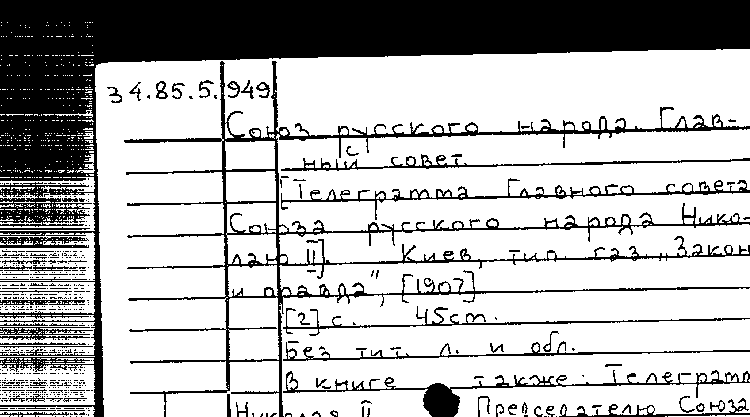 34.85.5.949.
Союз русского народа. Глав-
ный совет.
[Телеграмма Главного совета
Союза русского народа Нико-
лаю II]. Киев, тип. газ. „Закон
и правда", [1907]
[2] с. 45cm.
Без тит. л. и обл.
В книге также: Телеграмм
Николая II Председателю Союза